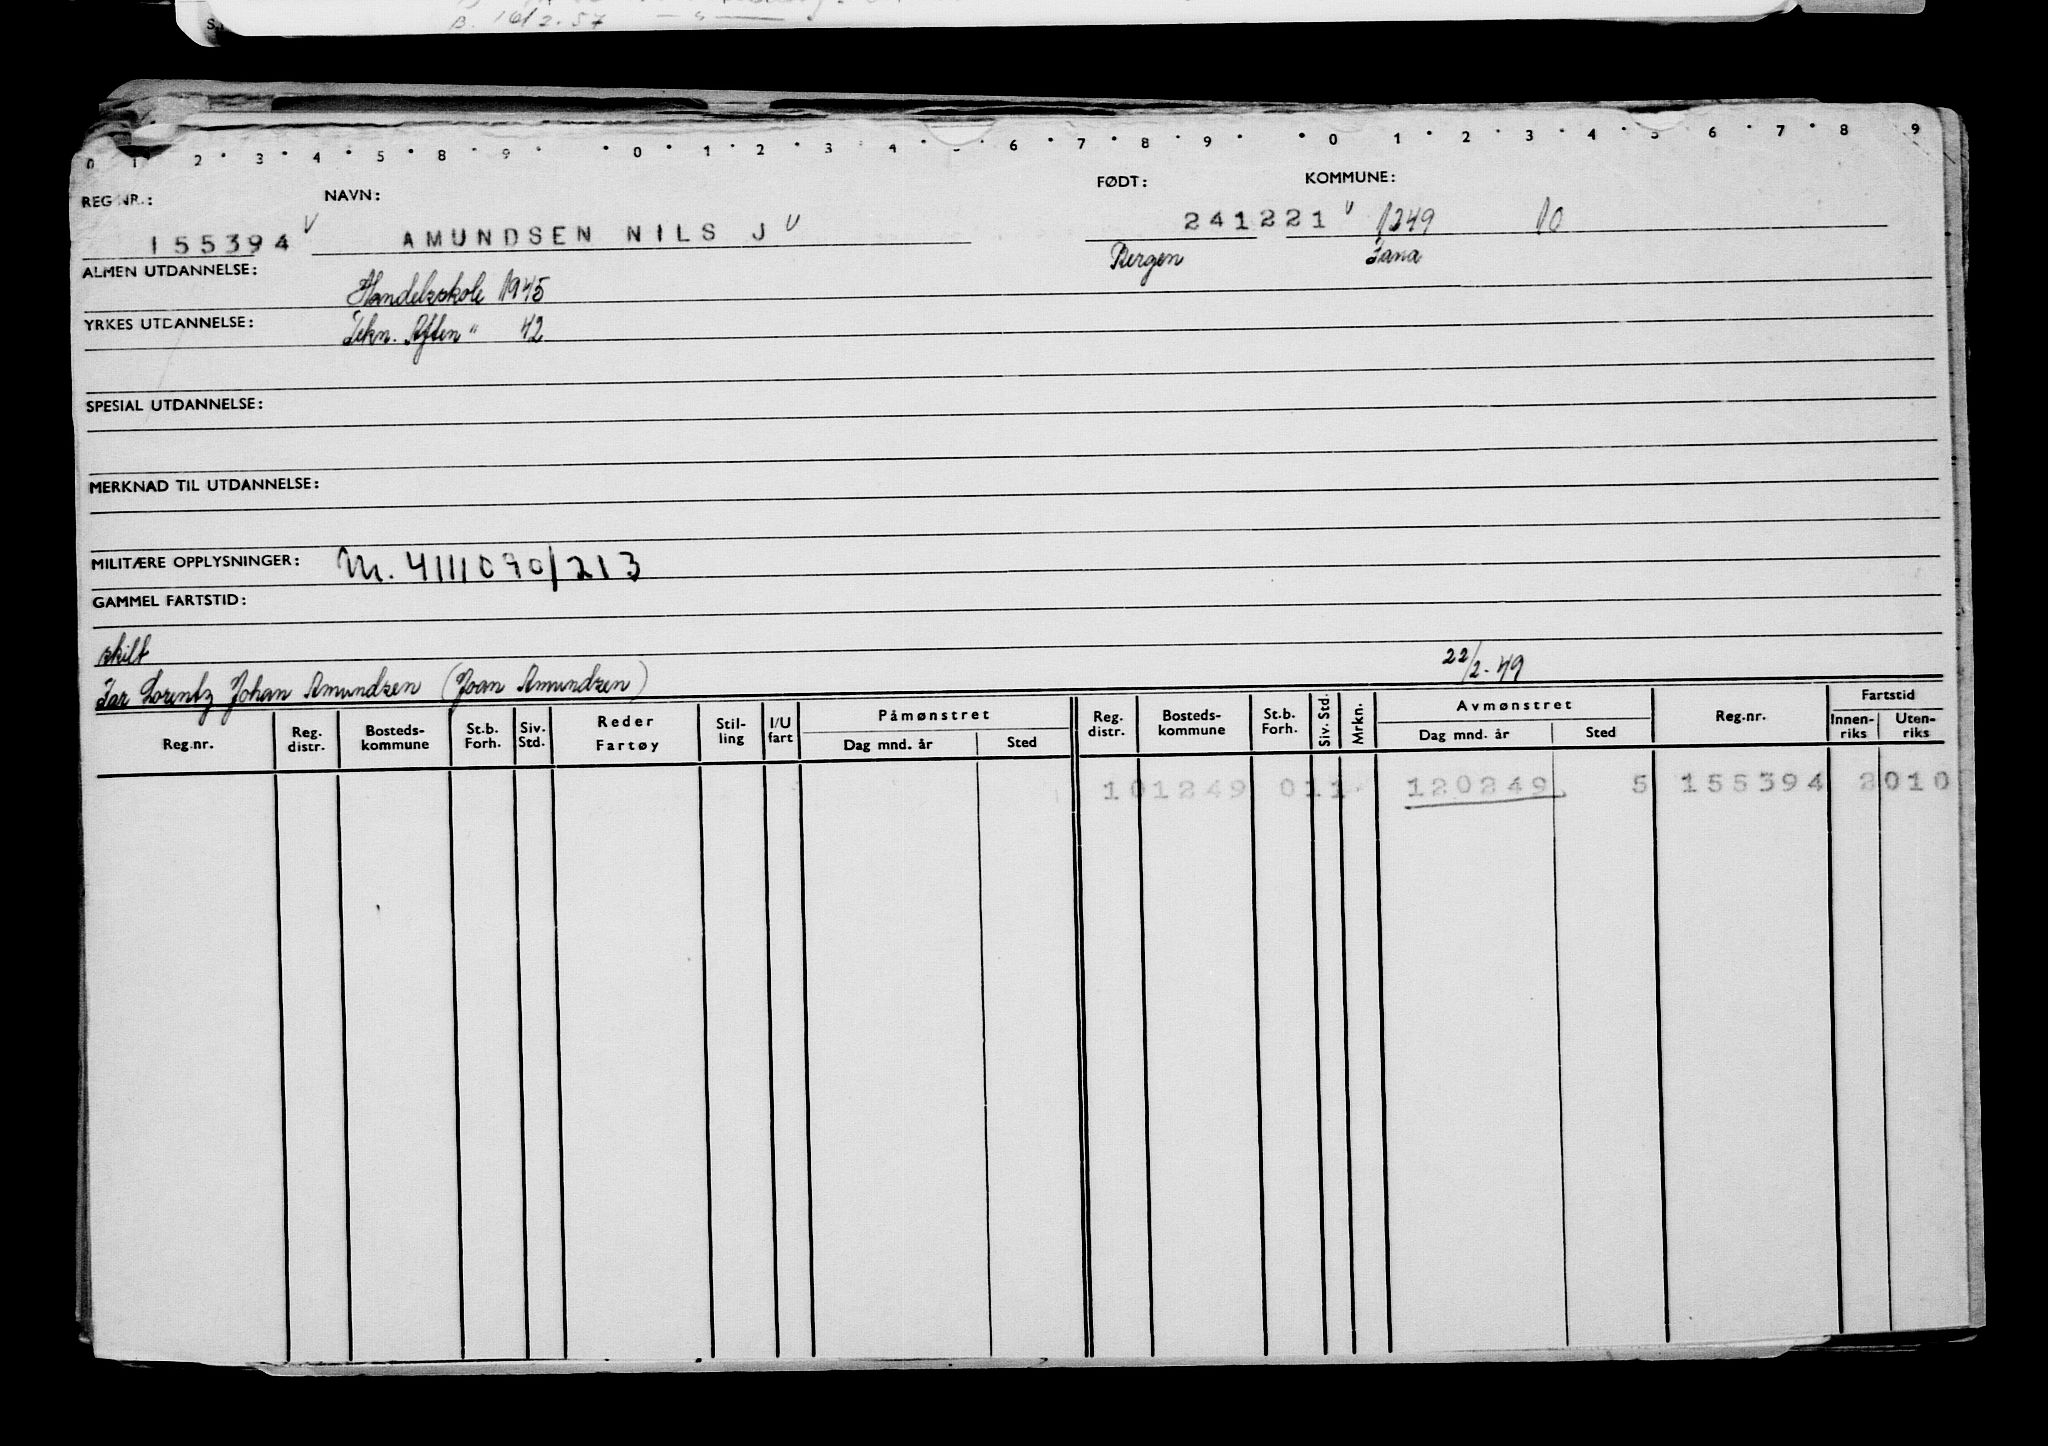 B. 16/2.57 — " —
0 1 2 3 4 5 8 9 0 1 2 3 4 5 6 7 8 9 0 1 2 3 4 5 6 7 8 9
REG NR.: NAVN: FØDT: KOMMUNE:
155394 V AMUNDSEN NILS J U 241221 U 1249 10
Bergen Fana
ALMEN UTDANNELSE: Handelsskole 1945
YRKES UTDANNELSE: Tekn. Aften " 42
SPESIAL UTDANNELSE:
MERKNAD TIL UTDANNELSE:
MILITÆRE OPPLYSNINGER: Nr. 4111090/213
GAMMEL FARTSTID:
skilt
Far Lorentz Johan Amundsen (Joan Amundsen) 22/2-49
Reg.nr. Reg. distr. Bosteds-kommune St.b. Forh. Siv. Std. Reder Fartøy Stil-ling I/U fart Påmønstret Dag mnd. år Sted Reg. distr. Bosteds-kommune St.b. Forh. Siv. Std. Mrkn. Avmønstret Dag mnd. år Sted Reg.nr. Fartstid Innen-riks Uten-riks
101249 011 120249 5 155394 2010